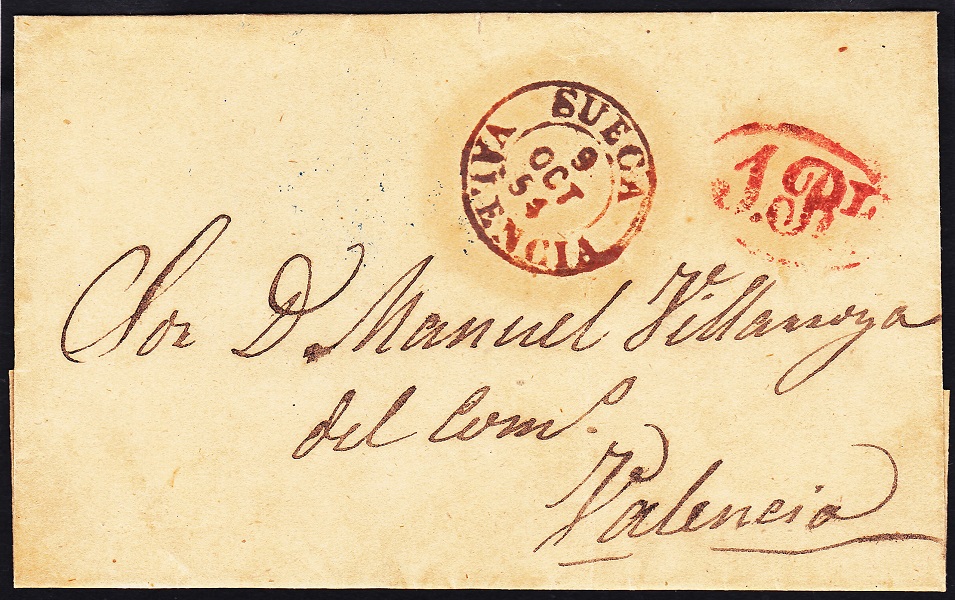 SUECA
9
OCT
54
VALENCIA
1. RL
Sor D. Manuel Villarroya
del Com.o
Valencia